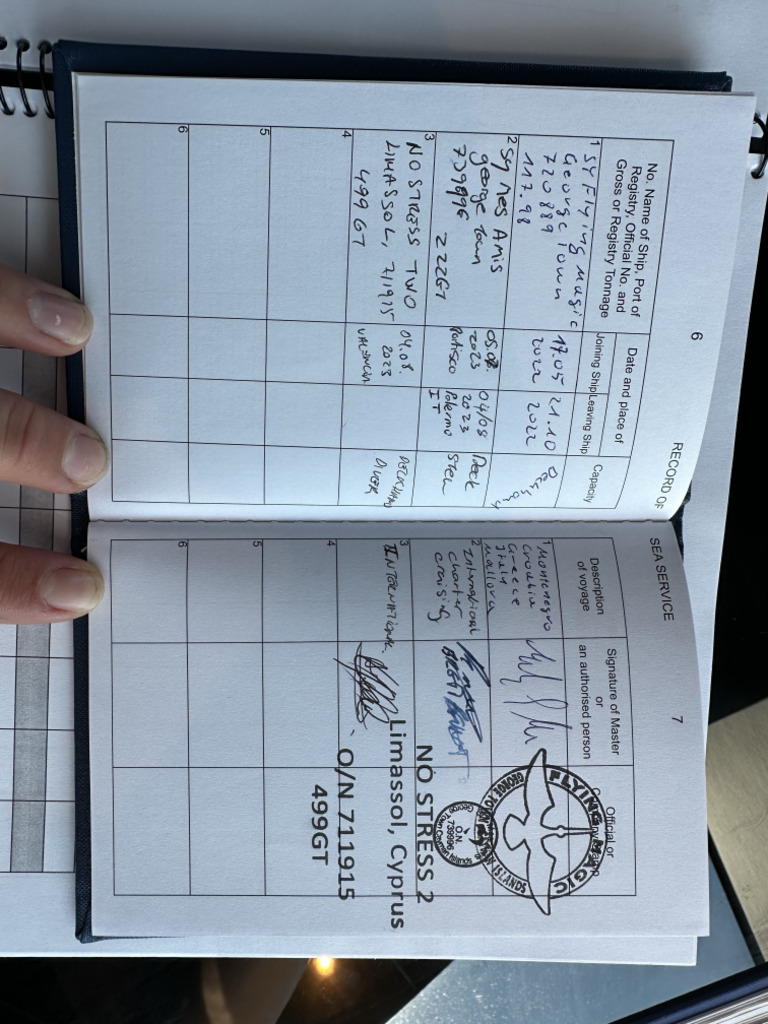 6
RECORD OF
No. Name of Ship, Port of
Registry, Official No. and
Gross or Registry Tonnage
Date and place of
Joining Ship
Leaving Ship
Capacity
1 SY Flying magic
George Town
720889
117.98
17.05
2022
21.10
2022
2 Sy nes Amis
george Town
739996 222GT
05.02.
2023
04/08
2023
Palermo
IT
Deck
Stew
3 NO STRESS TWO
LIMASSOL, 711915
499 GT
04.08.
2023
VALENCIA
DECKHAND
DIVER
4
5
6
SEA SERVICE
7
Description
of voyage
Signature of Master
or
an authorised person
Official or
1 Montenegro
Croatia
Greece
Italy
Mallorca
2 International
charter
cruising
3 INTERNATIONAL
4
5
6
FLYING MAGIC
GEORGE TOWN
CAYMAN ISLANDS
O.N
739996
NO STRESS 2
Limassol, Cyprus
O/N 711915
499GT